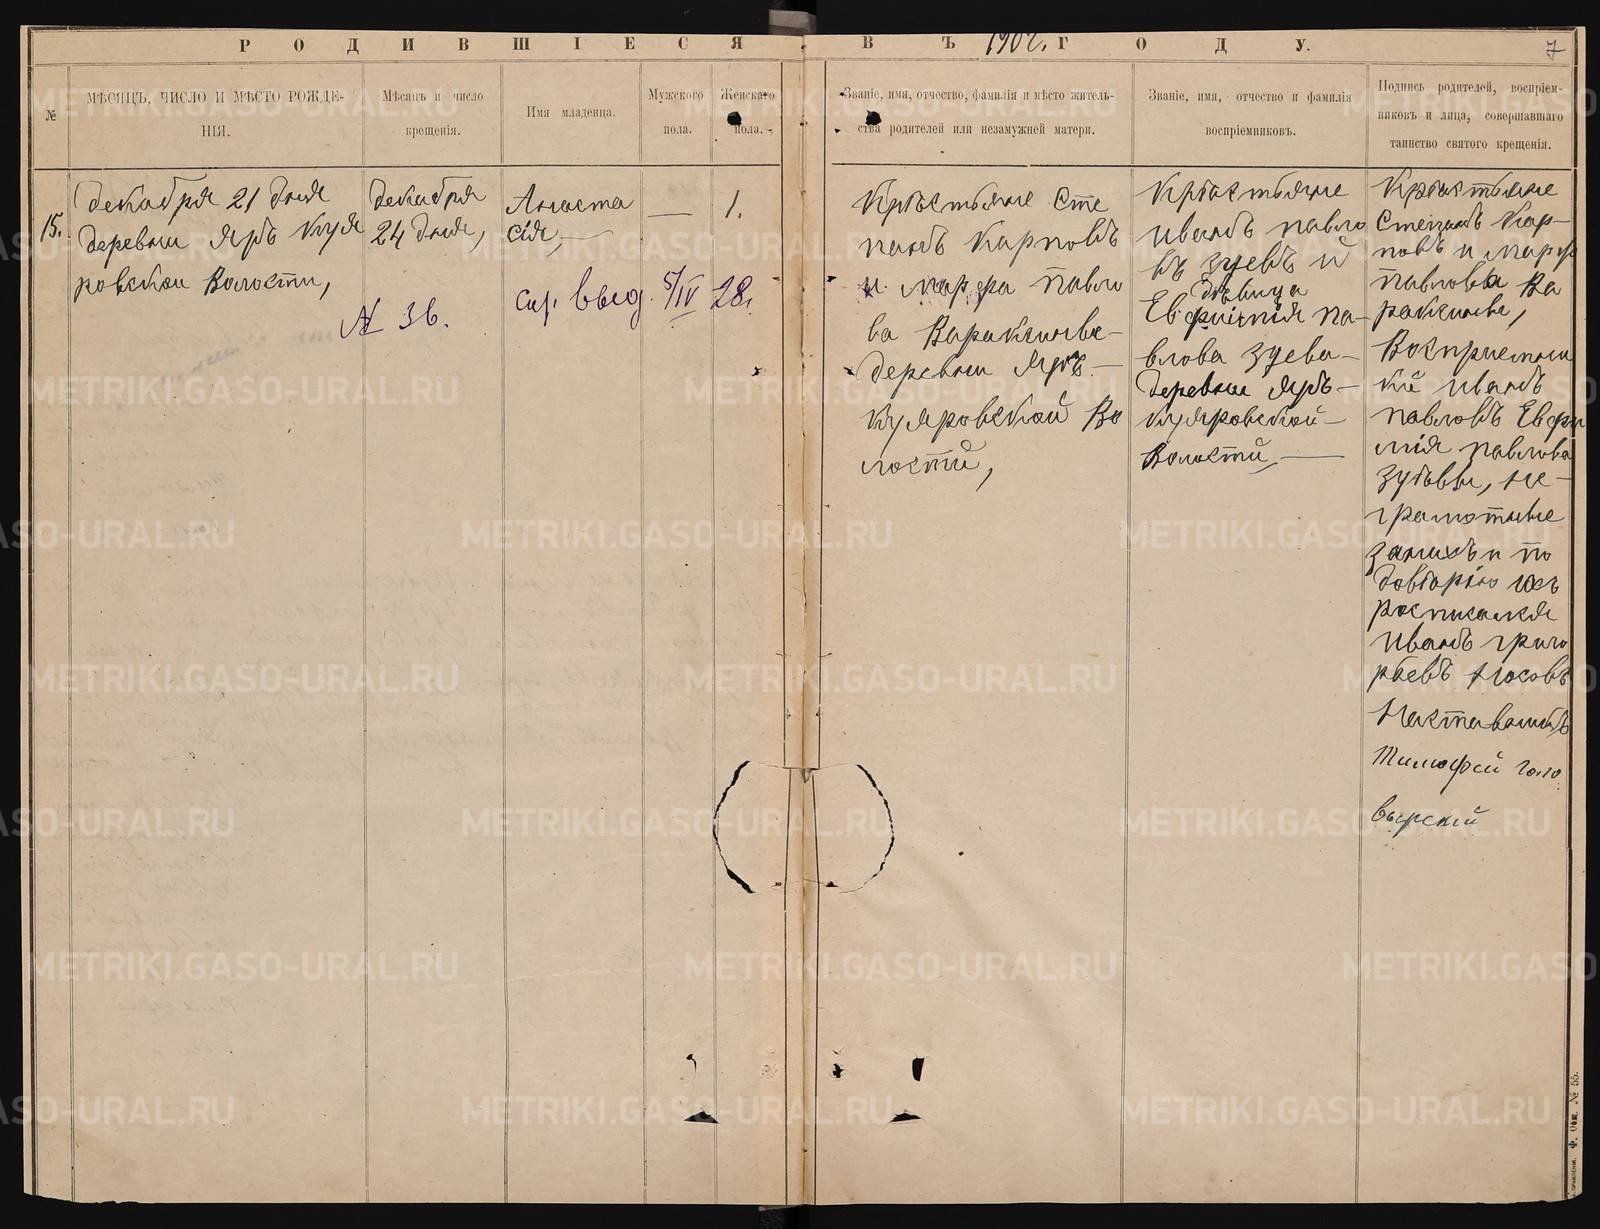 РОДИВШІЕСЯ ВЪ 1902. ГОДУ.
7
№
МѢСЯЦЪ, ЧИСЛО И МѢСТО РОЖДЕ-
НІЯ.
Мѣсяцъ и число
крещенія.
Имя младенца.
Мужского
пола.
Женскаго
пола.
Званіе, имя, отчество, фамилія и мѣсто житель-
ства родителей или незамужней матери.
Званіе, имя, отчество и фамилія
воспріемниковъ.
Подпись родителей, воспріем-
никовъ и лица, совершавшаго
таинство святого крещенія.
15.
Декабря 21 дня
деревни Яръ Куя
ровской Волости,
Декабря
24 дня,
Анаста
сія,
—
1.
№ 36.
выд. 5/IV 28.
Крѣстьяне Сте
панъ Карповъ
и марфа павло
ва Варакшыве
деревни Яръ
Куяровской Во
лости,
Крѣстьяне
иванъ павло
въ зуевъ и
девица
Евфимія па-
влова зуева
деревни Яръ
Куяровской
Волости,
Крѣстьяне
Степанъ Кар-
повъ и марф
павловы Ва
Воспрiемни
ки иванъ
павловъ Евфи
мія павлова
зуѣвы, не-
грамотные
занихъ и по
довѣрію ихъ
росписался
иванъ григо
рьевъ Носовъ
Наставникъ
Тимофей Голо
вырскій
Ф. Общ. № 55.
METRIKI.GASO-URAL.RU